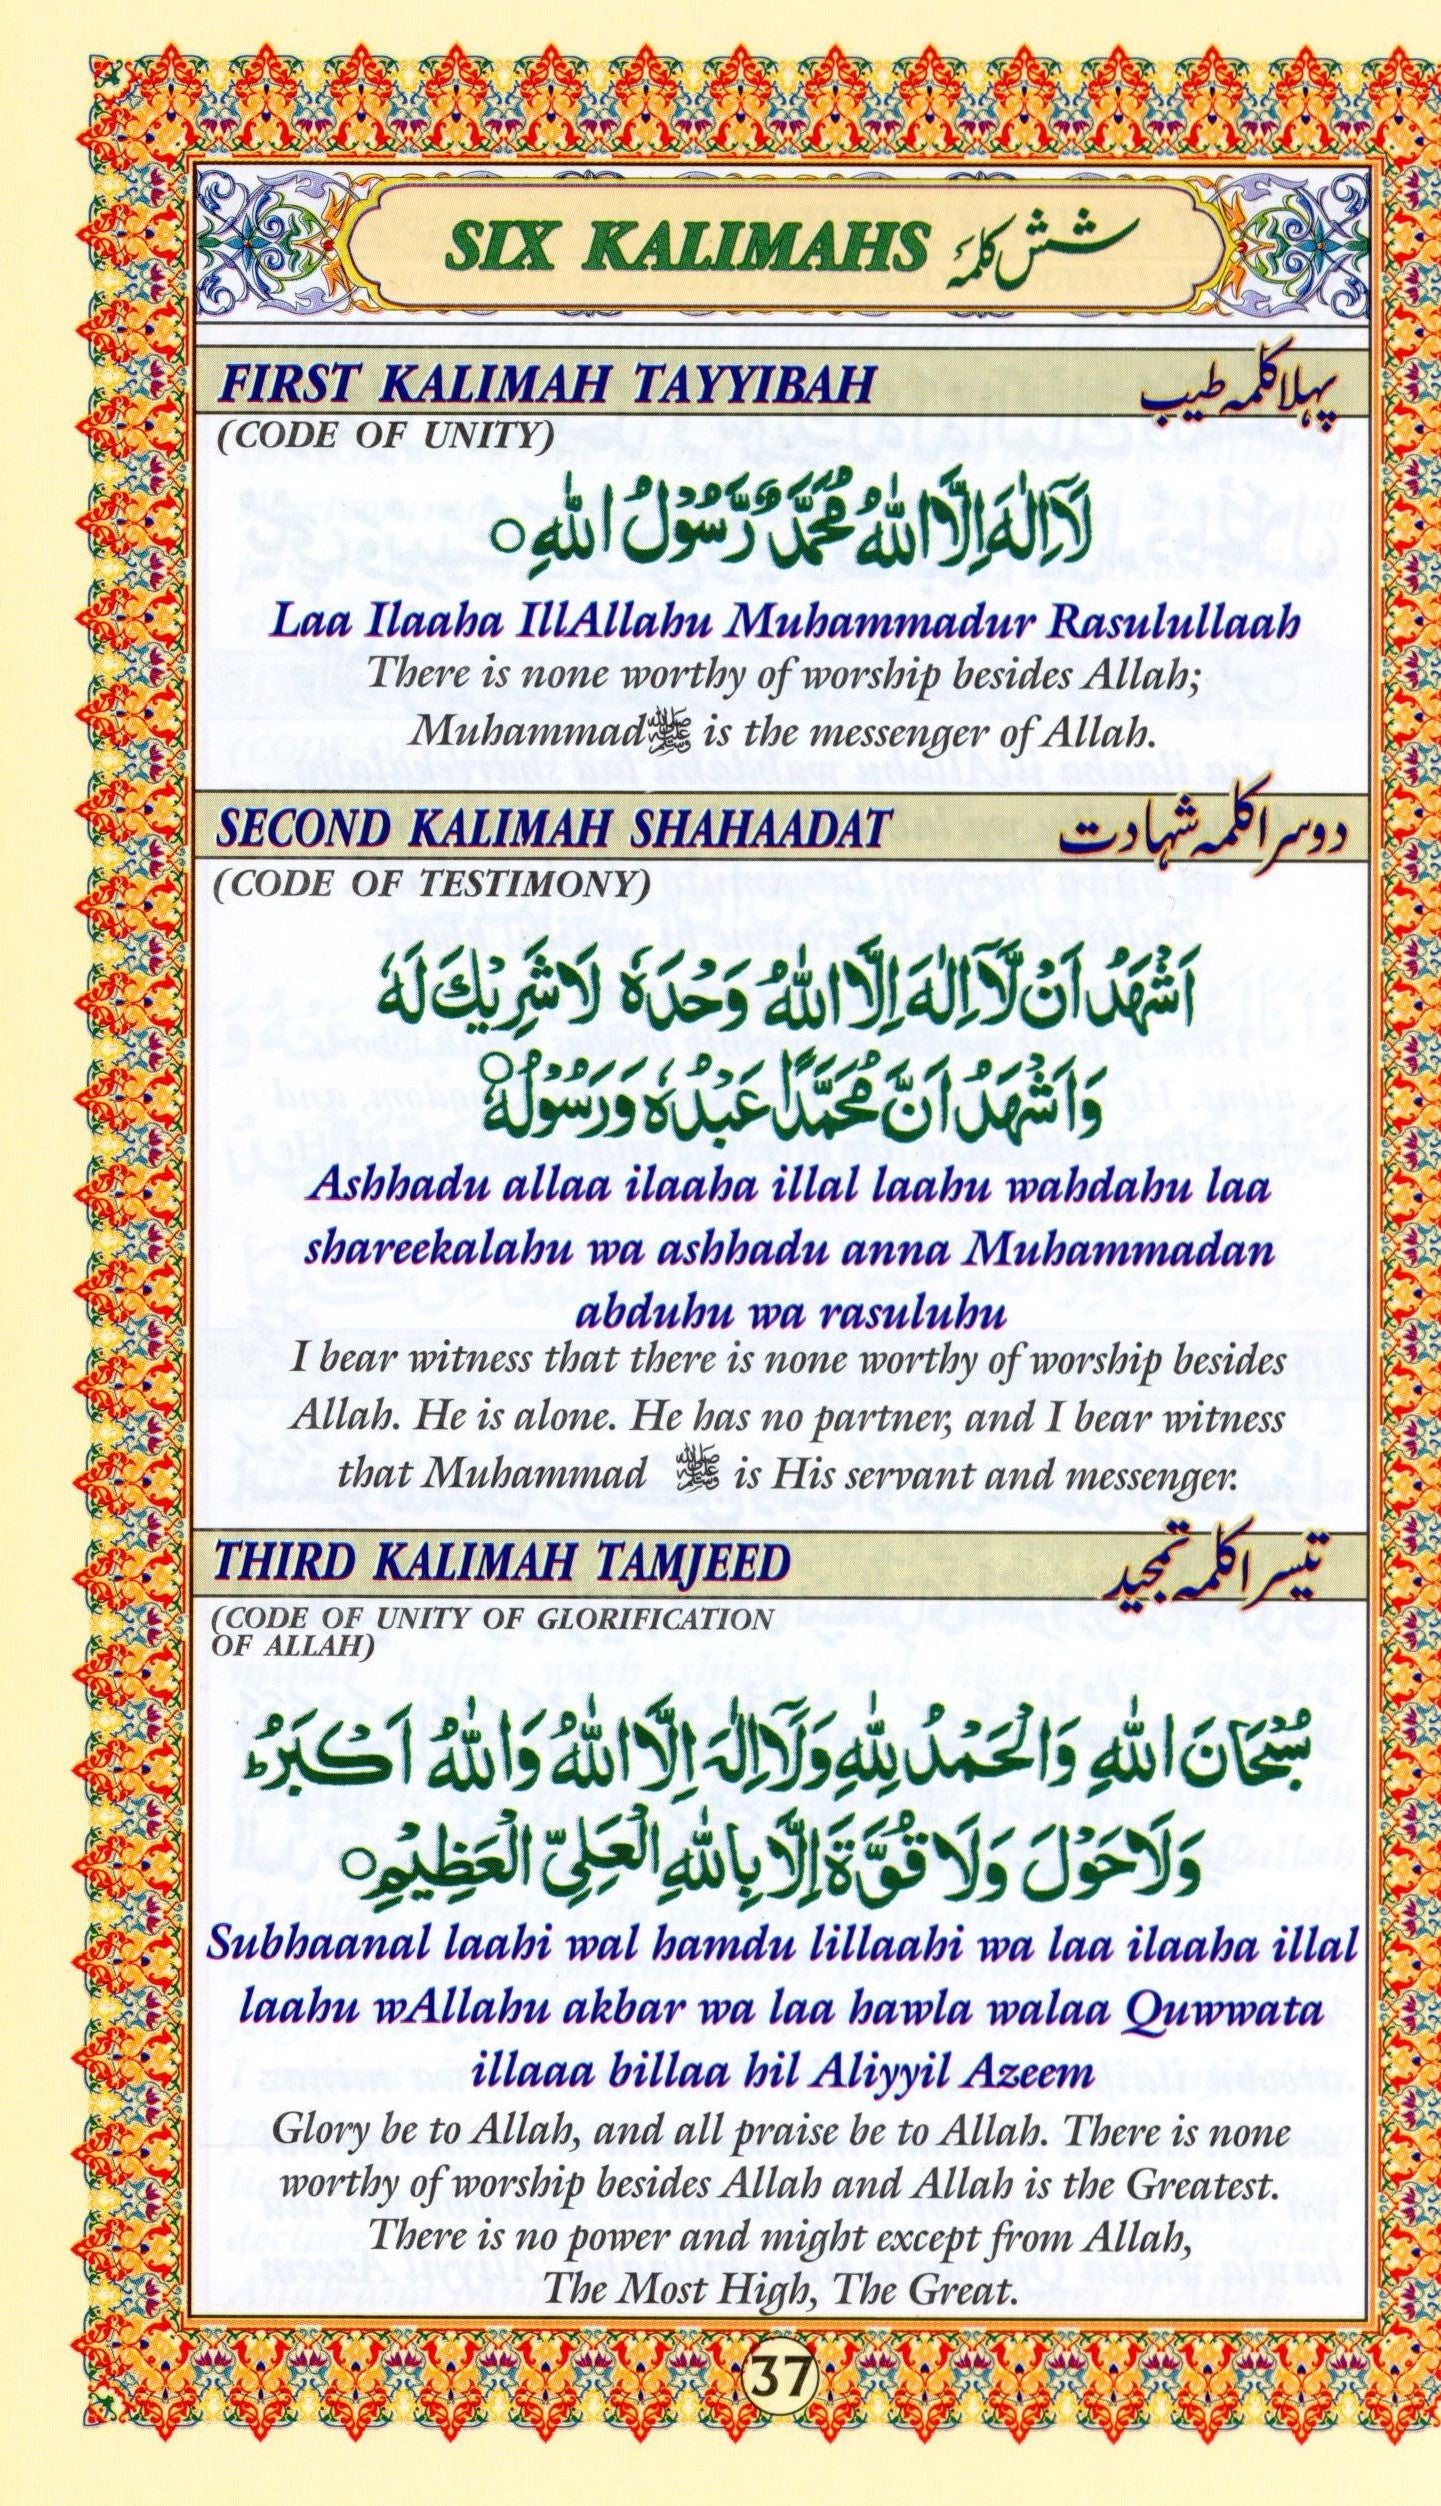 SIX KALIMAHS شش کلمۂ
FIRST KALIMAH TAYYIBAH پہلا کلمہ طیب
(CODE OF UNITY)
لَآ اِلٰهَ اِلَّا اللّٰهُ مُحَمَّدٌ رَّسُوْلُ اللّٰهِ○
Laa Ilaaha IllAllahu Muhammadur Rasulullaah
There is none worthy of worship besides Allah;
Muhammad ﷺ is the messenger of Allah.
SECOND KALIMAH SHAHAADAT دوسرا کلمہ شہادت
(CODE OF TESTIMONY)
اَشْهَدُ اَنْ لَّآ اِلٰهَ اِلَّا اللّٰهُ وَحْدَهٗ لَا شَرِيْكَ لَهٗ
وَاَشْهَدُ اَنَّ مُحَمَّدًا عَبْدُهٗ وَرَسُوْلُهٗ○
Ashhadu allaa ilaaha illal laahu wahdahu laa
shareekalahu wa ashhadu anna Muhammadan
abduhu wa rasuluhu
I bear witness that there is none worthy of worship besides
Allah. He is alone. He has no partner, and I bear witness
that Muhammad ﷺ is His servant and messenger.
THIRD KALIMAH TAMJEED تیسرا کلمہ تمجید
(CODE OF UNITY OF GLORIFICATION
OF ALLAH)
سُبْحَانَ اللّٰهِ وَالْحَمْدُ لِلّٰهِ وَلَآ اِلٰهَ اِلَّا اللّٰهُ وَاللّٰهُ اَكْبَرُؕ
وَلَا حَوْلَ وَلَا قُوَّةَ اِلَّا بِاللّٰهِ الْعَلِيِّ الْعَظِيْمِ○
Subhaanal laahi wal hamdu lillaahi wa laa ilaaha illal
laahu wAllahu akbar wa laa hawla walaa Quwwata
illaaa billaa hil Aliyyil Azeem
Glory be to Allah, and all praise be to Allah. There is none
worthy of worship besides Allah and Allah is the Greatest.
There is no power and might except from Allah,
The Most High, The Great.
37